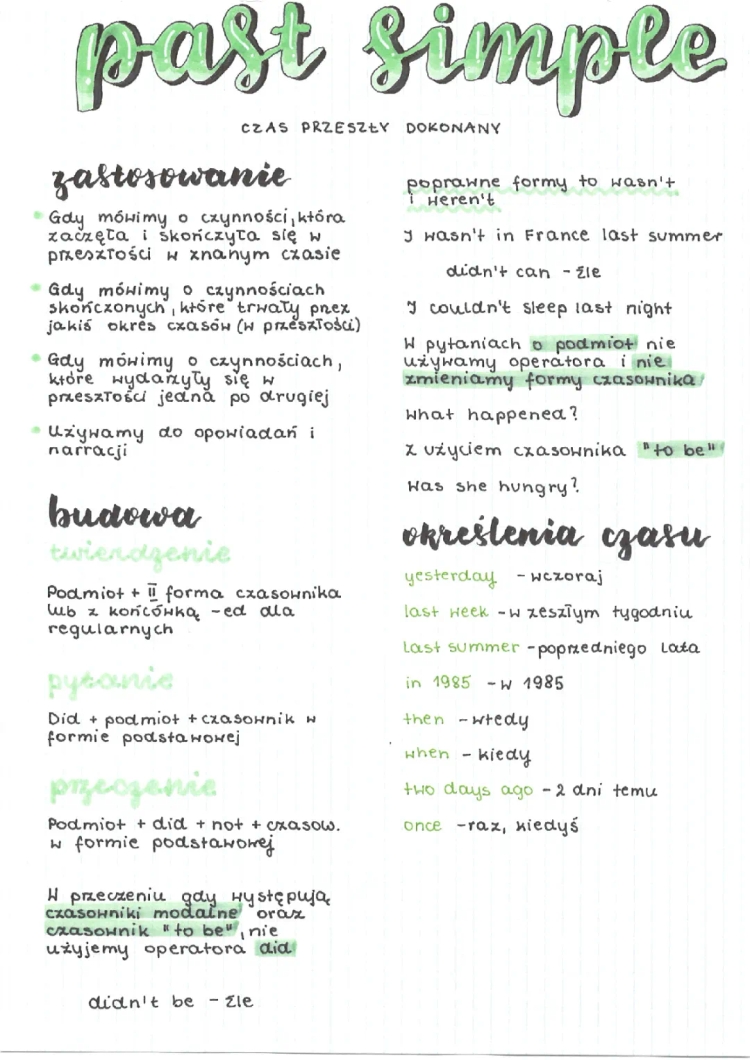 past simple
CZAS PRZESZŁY DOKONANY
zastosowanie
Gdy mówimy o czynności, która
zaczęła i skończyła się w
przeszłości w znanym czasie
Gdy mówimy o czynnościach
skończonych, które trwały przez
jakiś okres czasów (w przeszłości)
Gdy mówimy o czynnościach,
które wydarzyły się w
przeszłości jedna po drugiej
Używamy do opowiadań i
narracji
budowa
twierdzenie
Podmiot + II forma czasownika
lub z końcówką -ed dla
regularnych
pytanie
Did + podmiot + czasownik w
formie podstawowej
przeczenie
Podmiot + did + not + czasow.
w formie podstawowej
W przeczeniu gdy występują
czasowniki modalne oraz
czasownik "to be", nie
użyjemy operatora did
didn't be - źle
poprawne formy to wasn't
i weren't
I wasn't in France last summer
didn't can - źle
I couldn't sleep last night
W pytaniach o podmiot nie
używamy operatora i nie
zmieniamy formy czasownika
What happened?
Z użyciem czasownika "to be"
Was she hungry?
określenia czasu
yesterday - wczoraj
last week - w zeszłym tygodniu
last summer - poprzedniego lata
in 1985 - w 1985
then - wtedy
when - kiedy
two days ago - 2 dni temu
once - raz, kiedyś